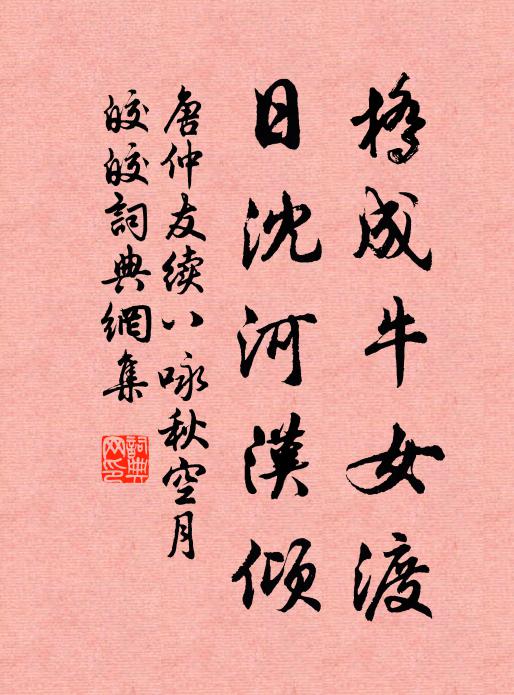 橋成牛女渡
日沈河漢傾
唐仲友续八咏秋空月
皎皎詞典網集
詞典
网印